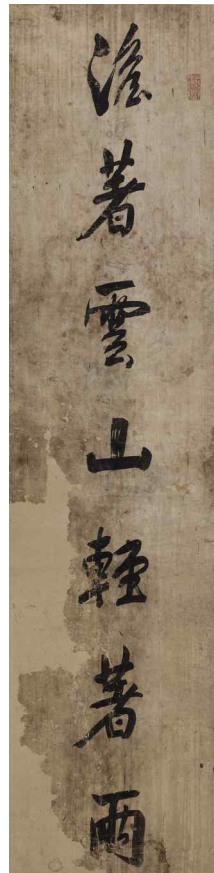 澹著雲山輕著雨